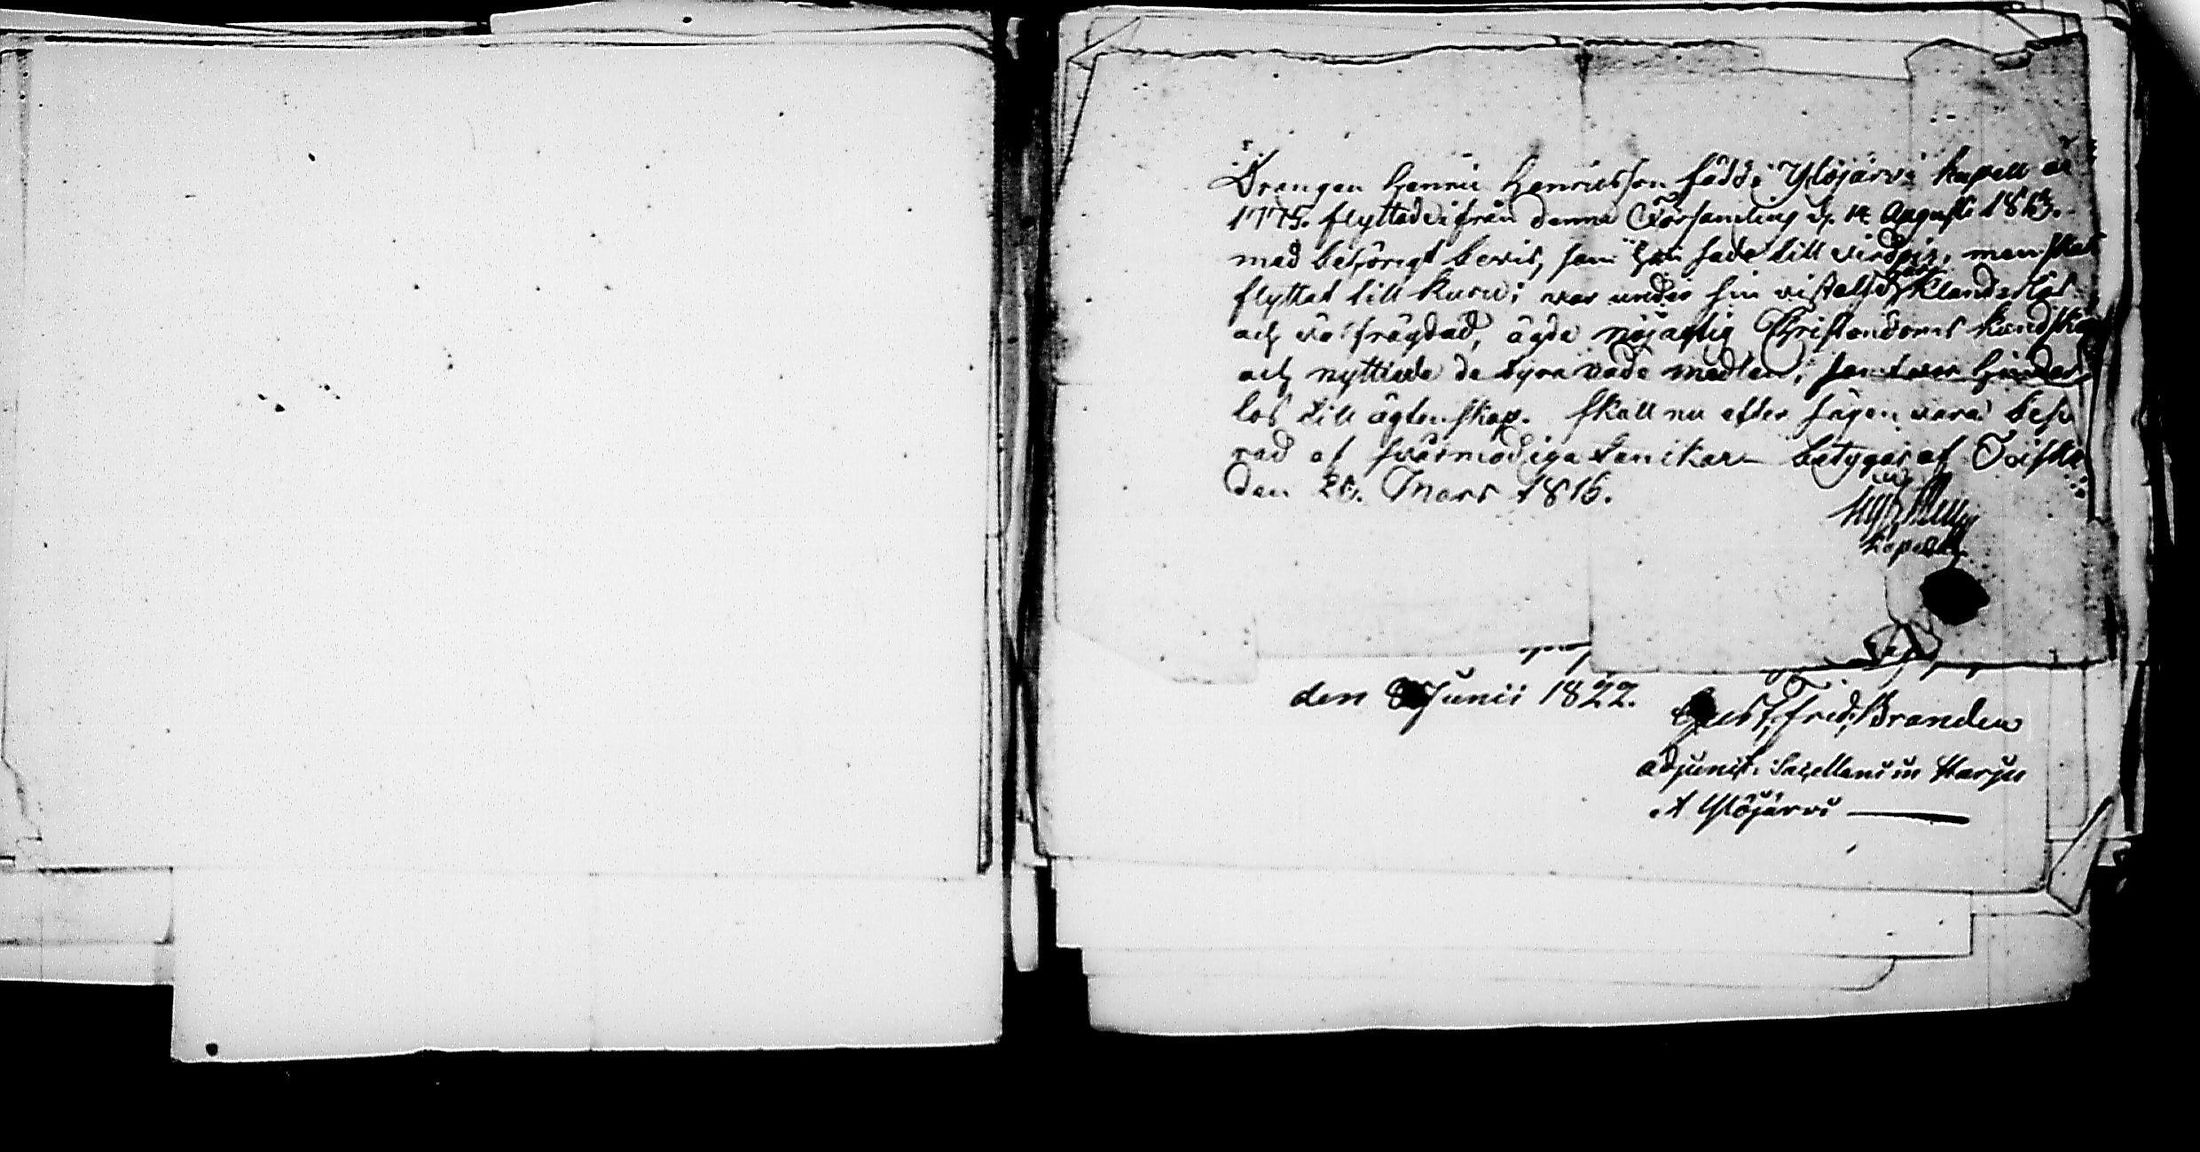 Drängen Henric Henricsson född i Ylöjärvi kapell år
1775. flyttade ifrån denna Församling d. 14 Augusti 1813.
med behörigt bewis, som han sade till, men skal
flyttat till Kuru; war under sin wistelse här Klanderlös
och wälfrägdad, ägde nöjagtig Christendoms kundskap
och nyttiade de dyra nåde medlen; samt war hinder
lös till ägtenskap. Skall nu efter sägen wara beswä
rad af swårmodiga tankar betygar af
den 26. Mars 1816.
Kapellan
den 8 Junii 1822.
Gust. Fred. Brander
adjunct. Sacellani in Harju
et Ylöjärvi